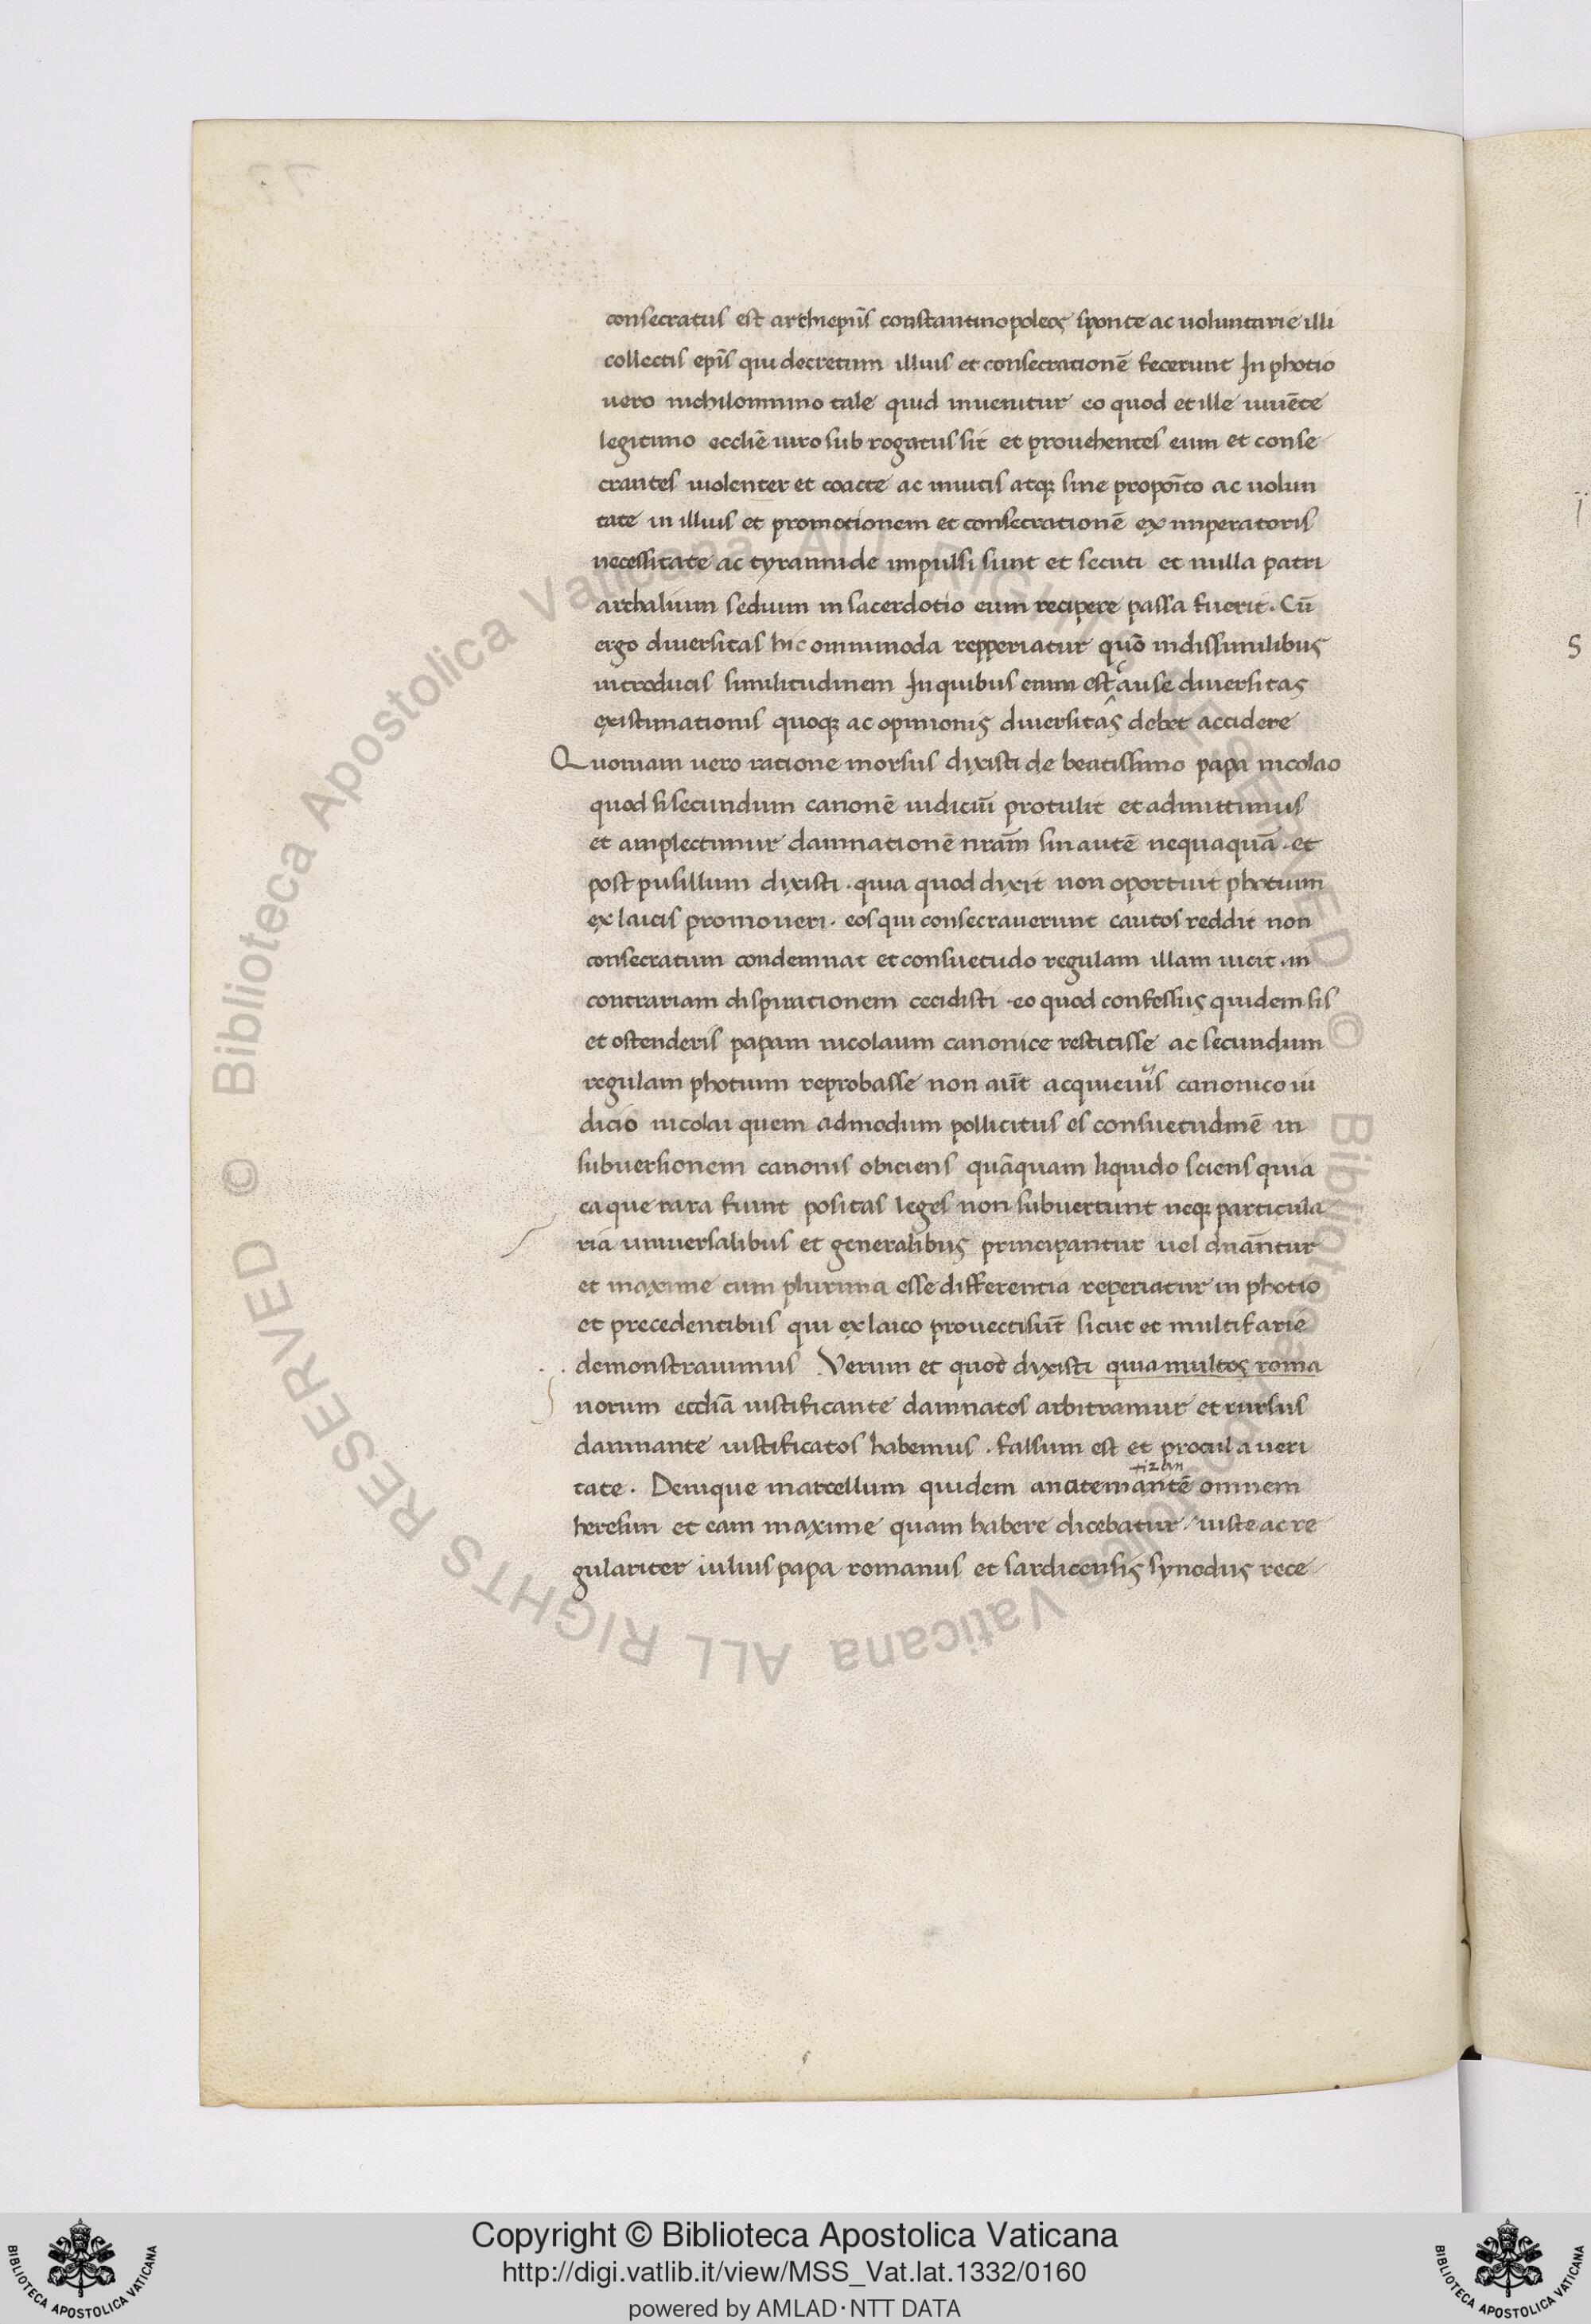 consecratus est archiepūs constantinopoleos sponte ac uoluntarie illi
collectis epīs qui decretum illius et consecrationē fecerunt In photio
uero nichilominuo tale quid inuenitur eo quod et ille uiuēte
legitimo eccliē uiro sub rogatus sit et prouehentes eum et conse
crantes uiolenter et coacte ac inuitis atq; sine propoīto ac uolun
tate in illius et promotionem et consecrationē ex imperatoris
necessitate ac tyrannide impulsi sunt et secuti et nulla patri
archalium sedium in sacerdotio eum recipere passa fuerit. Cū
ergo diuersitas hic omnimoda repperiatur quō indissimilibus
introducis similitudinem In quibus enim est causę diuersitas
existimationis quoq; ac opinionis diuersitas debet accidere
Quoniam uero ratione morsus dixisti de beatissimo papa nicolao
quod si secundum canonē iudiciū protulit et admittimus
et amplectimur damnationē nrām sin autē nequaquā. et
post pusillum dixisti. quia quod dixit non oportuit photium
ex laicis promoueri. eos qui consecrauerunt cautos reddit non
consecratum condemnat et consuetudo regulam illam uicit. in
contrariam dispirationem cecidisti. eo quod confessus quidem sis
et ostenderis papam nicolaum canonice restitisse ac secundum
regulam photium reprobasse non aūt acquieuis canonico iu
dicio nicolai quem admodum pollicitus es consuetudinē in
subuersionem canonis obiciens quāquam liquido sciens quia
ea que rara fiunt positas leges non subuertunt neq; particula
ria uniuersalibus et generalibus principantur uel dnāntur
et maxime cum plurima esse differentia reperiatur in photio
et precedentibus qui ex laico prouecti sūt sicut et multifarie
demonstrauimus. Verum et quot dixisti quia multos roma
norum eccliā iustificante damnatos arbitramur et rursus
damnante iustificatos habemus. falsum est et procul a ueri
tizan
tate. Denique marcellum quidem anatemantē omnem
heresim et eam maxime quam habere dicebatur / iuste ac re
gulariter iulius papa romanus et sardicensis synodus rece
Copyright © Biblioteca Apostolica Vaticana
http://digi.vatlib.it/view/MSS_Vat.lat.1332/0160
powered by AMLAD·NTT DATA
BIBLIOTECA APOSTOLICA VATICANA
BIBLIOTECA APOSTOLICA VATICANA
© Biblioteca Apostolica Vaticana ALL RIGHTS RESERVED
© Biblioteca Apostolica Vaticana ALL RIGHTS RESERVED